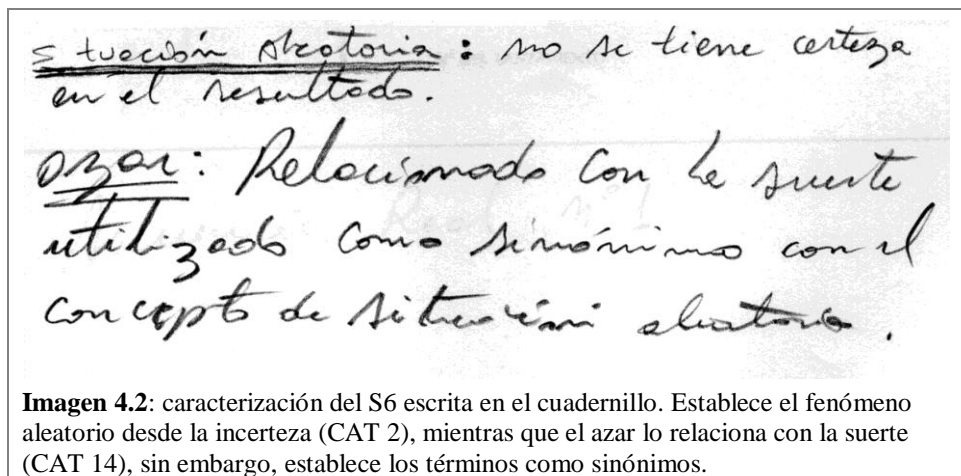 Situación aleatoria: no se tiene certeza
en el resultado.
azar: Relacionado con la suerte
utilizado como sinónimo con el
concepto de situación aleatoria.
Imagen 4.2: caracterización del S6 escrita en el cuadernillo. Establece el fenómeno
aleatorio desde la incerteza (CAT 2), mientras que el azar lo relaciona con la suerte
(CAT 14), sin embargo, establece los términos como sinónimos.